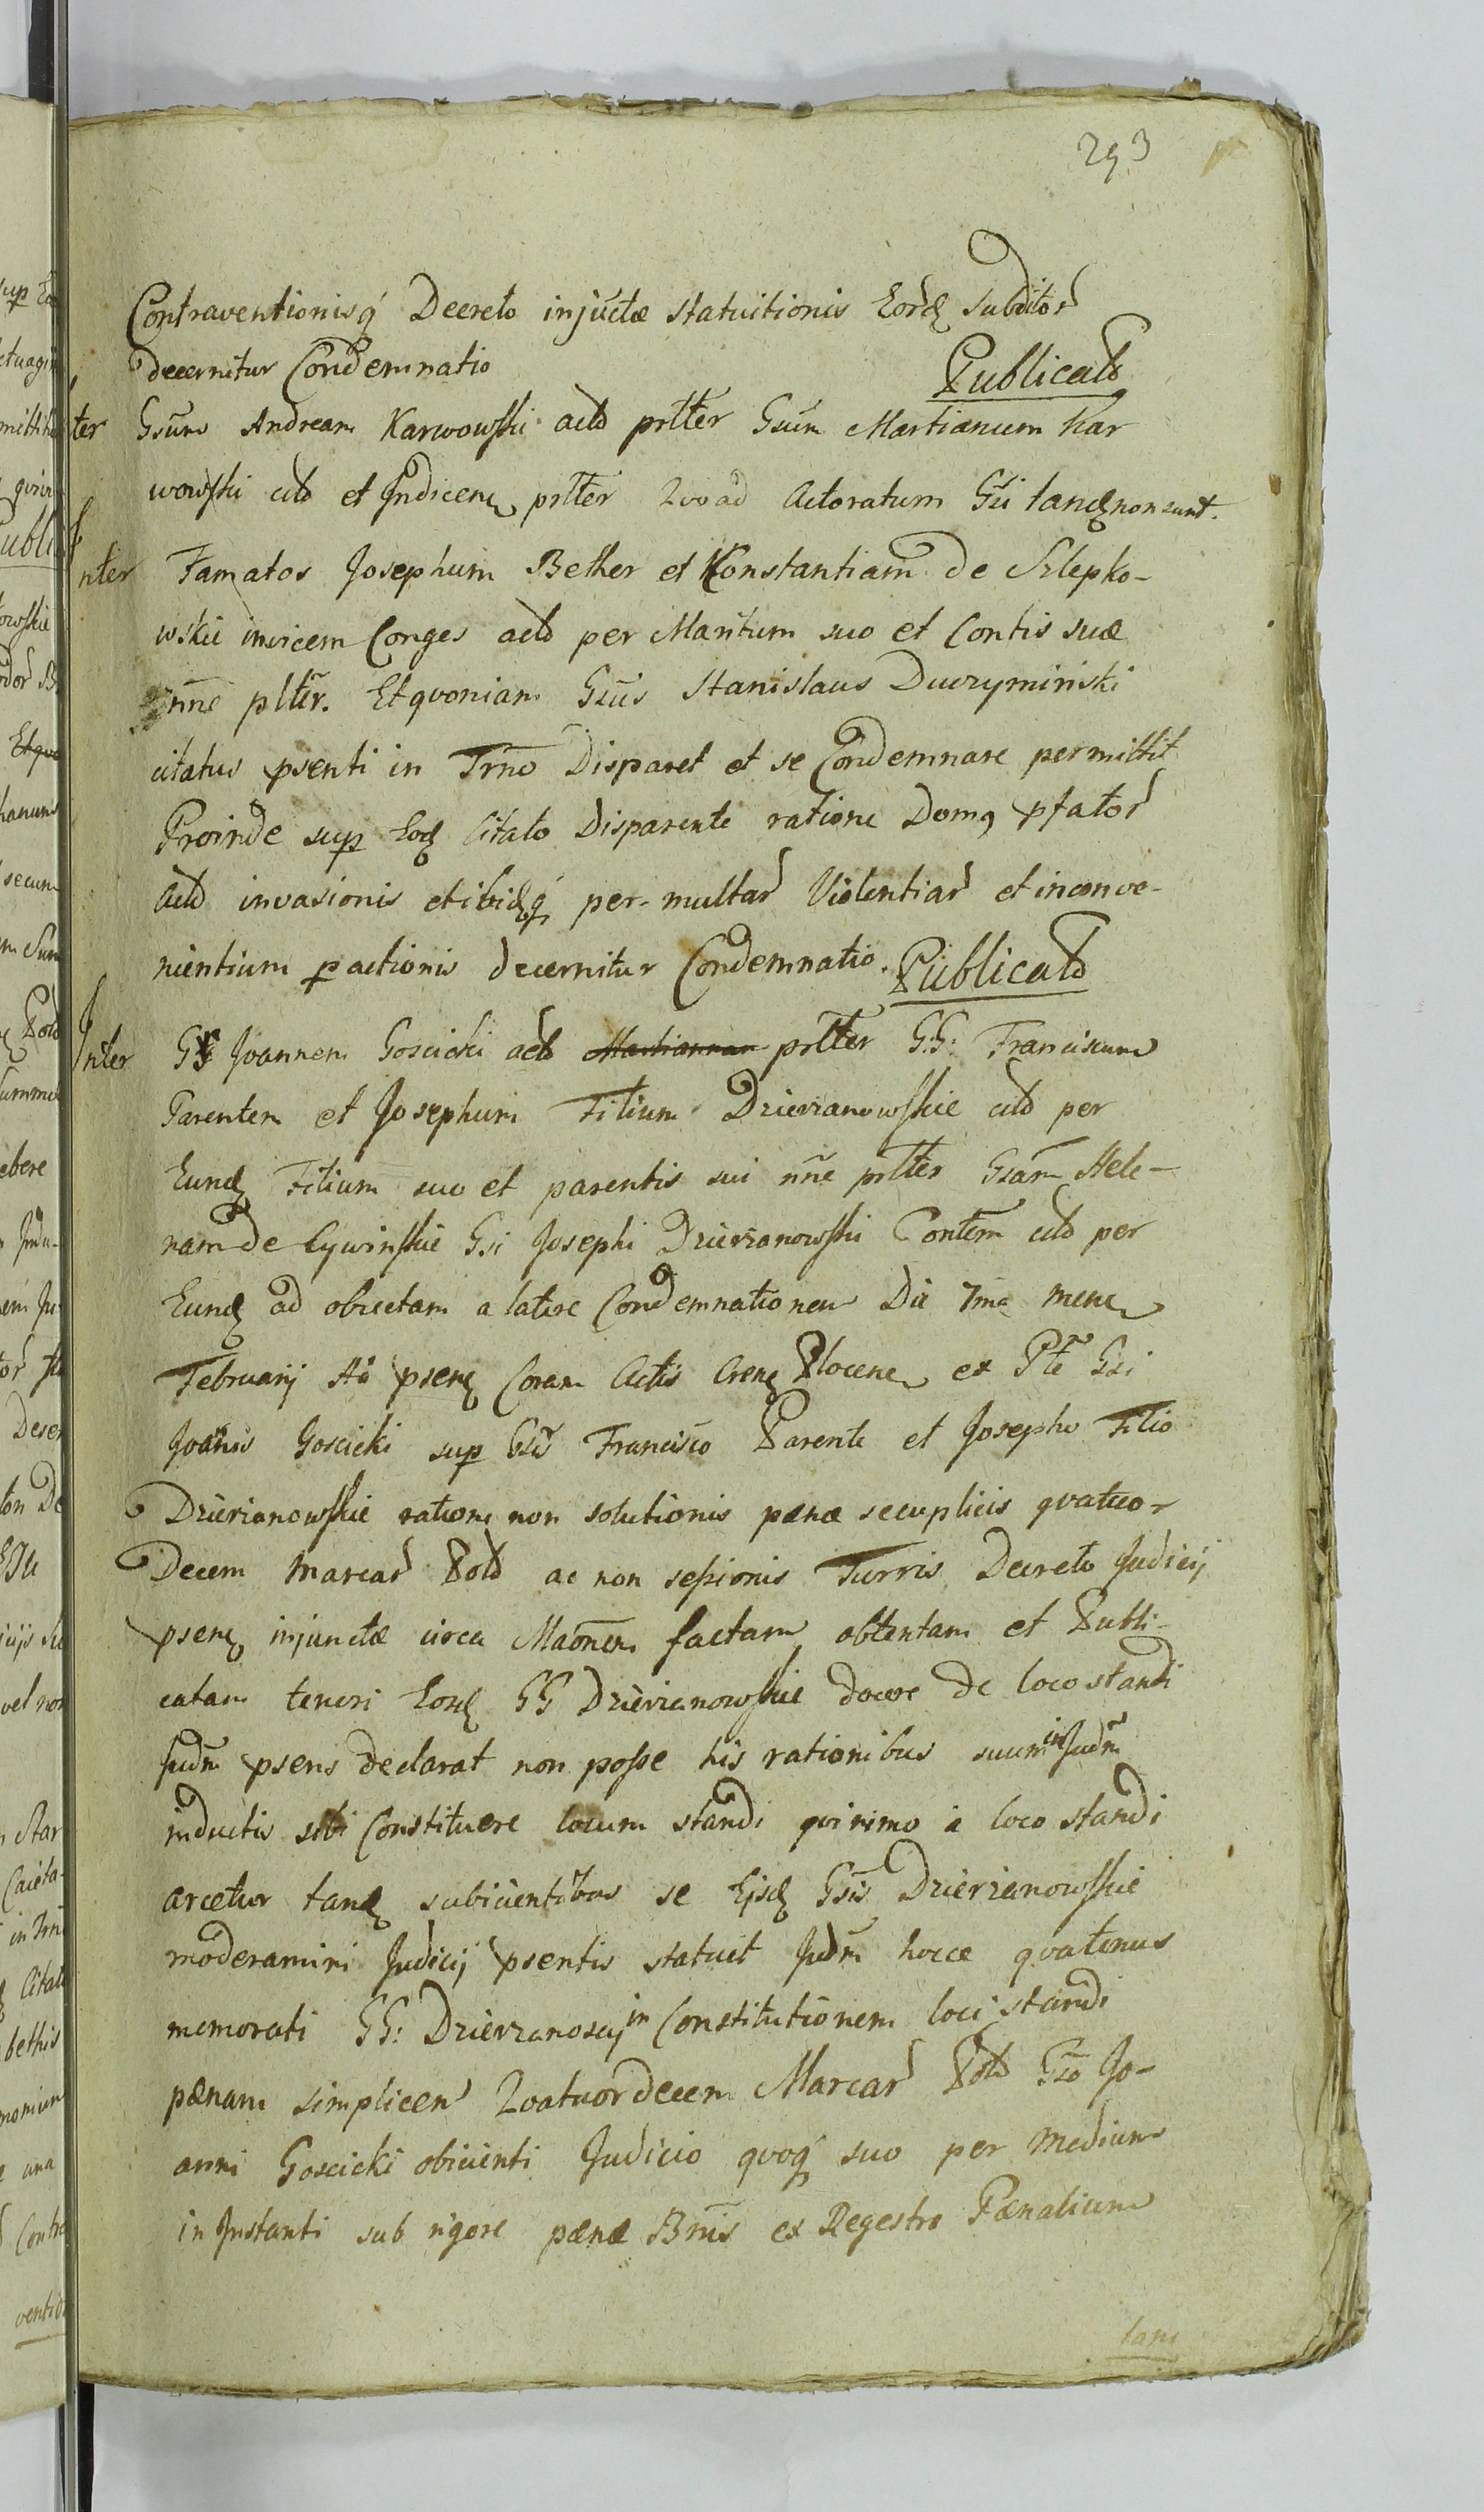 293
Contraventionisq́ Decreto injūctæ statuitionis Eordȩ subditor
decernitur Condemnatio Publicatȣ
ter Gsūm Andream Karwowski actȣ prlter Gsum Martianum Kar
wowski citȣ et Indicenȩ prlter Qvoad Actoratum Gsi tanȩ non sunt.
Inter Famatos Josephum Bether et Konstantiam de Szlepko-
wskie invicem Conges actȣ per Maritum suo et Contis suæ
nñe plter. Et qvoniam Gsus Stanislaus Duczyminski
citatus psenti in Trño Disparet et se Condemnare permittit
Proinde sup Eodȩ Citato Disparente ratione Domȩ pfator
Actȣ invasionis et ibidȩq́ per-multar Violentiar et inconve-
nientium pactionis decernitur Condemnatio. Publicatȣ
Inter Gs Joannem Goscicki actȣ Martiannan prlter GG: Franciscum
Parentem et Josephum Filium Dzierzanowskie citȣ per
Eundȩ Filium suo et parentis sui nñe prlter Gsam Hele-
nam de Cywinskie Gsi Josephi Dzierzanowski Contem citȣ per
Eundȩ ad obiectam a latere Condemnationem Die 7ma mene
Februarij Aō psenȩ Coram Actis Crenȩ Plocene ex Pte Gsi
Joānis Goscicki sup Gsis Francisco Parente et Josepho Filio
Dzierzanowskie ratione non solutionis pænæ secuplicis qvatuor
Decem Marcar Polȣ ac non sessionis Turris Decreto Judicij
psenȩ injunctæ circa Maōnem factam obtentam et Publi-
catam teneri Eosdȩ GG Dzierzanowskie docere de loco standi
Judm psens declarat non posse his rationibus suum in Judm
inductis sibi Constituere locum standi qvinimo a loco standi
arcetur tandȩ subicientibus se Eisdȩ Gsis Dzierzanowskie
moderamini Judicij psentis statuit Judm hocce qvatenus
memorati GG: Dzierzanoscij in Constitutionem loci standi
pænam simplicem Qvatuordecem Marcar Polȣ Gso Jo-
anni Goscicki obicienti Judicio qvoq́ suo per Medium
in Instanti sub rigore pænæ Bnis ex Regestro Pænalium
tam